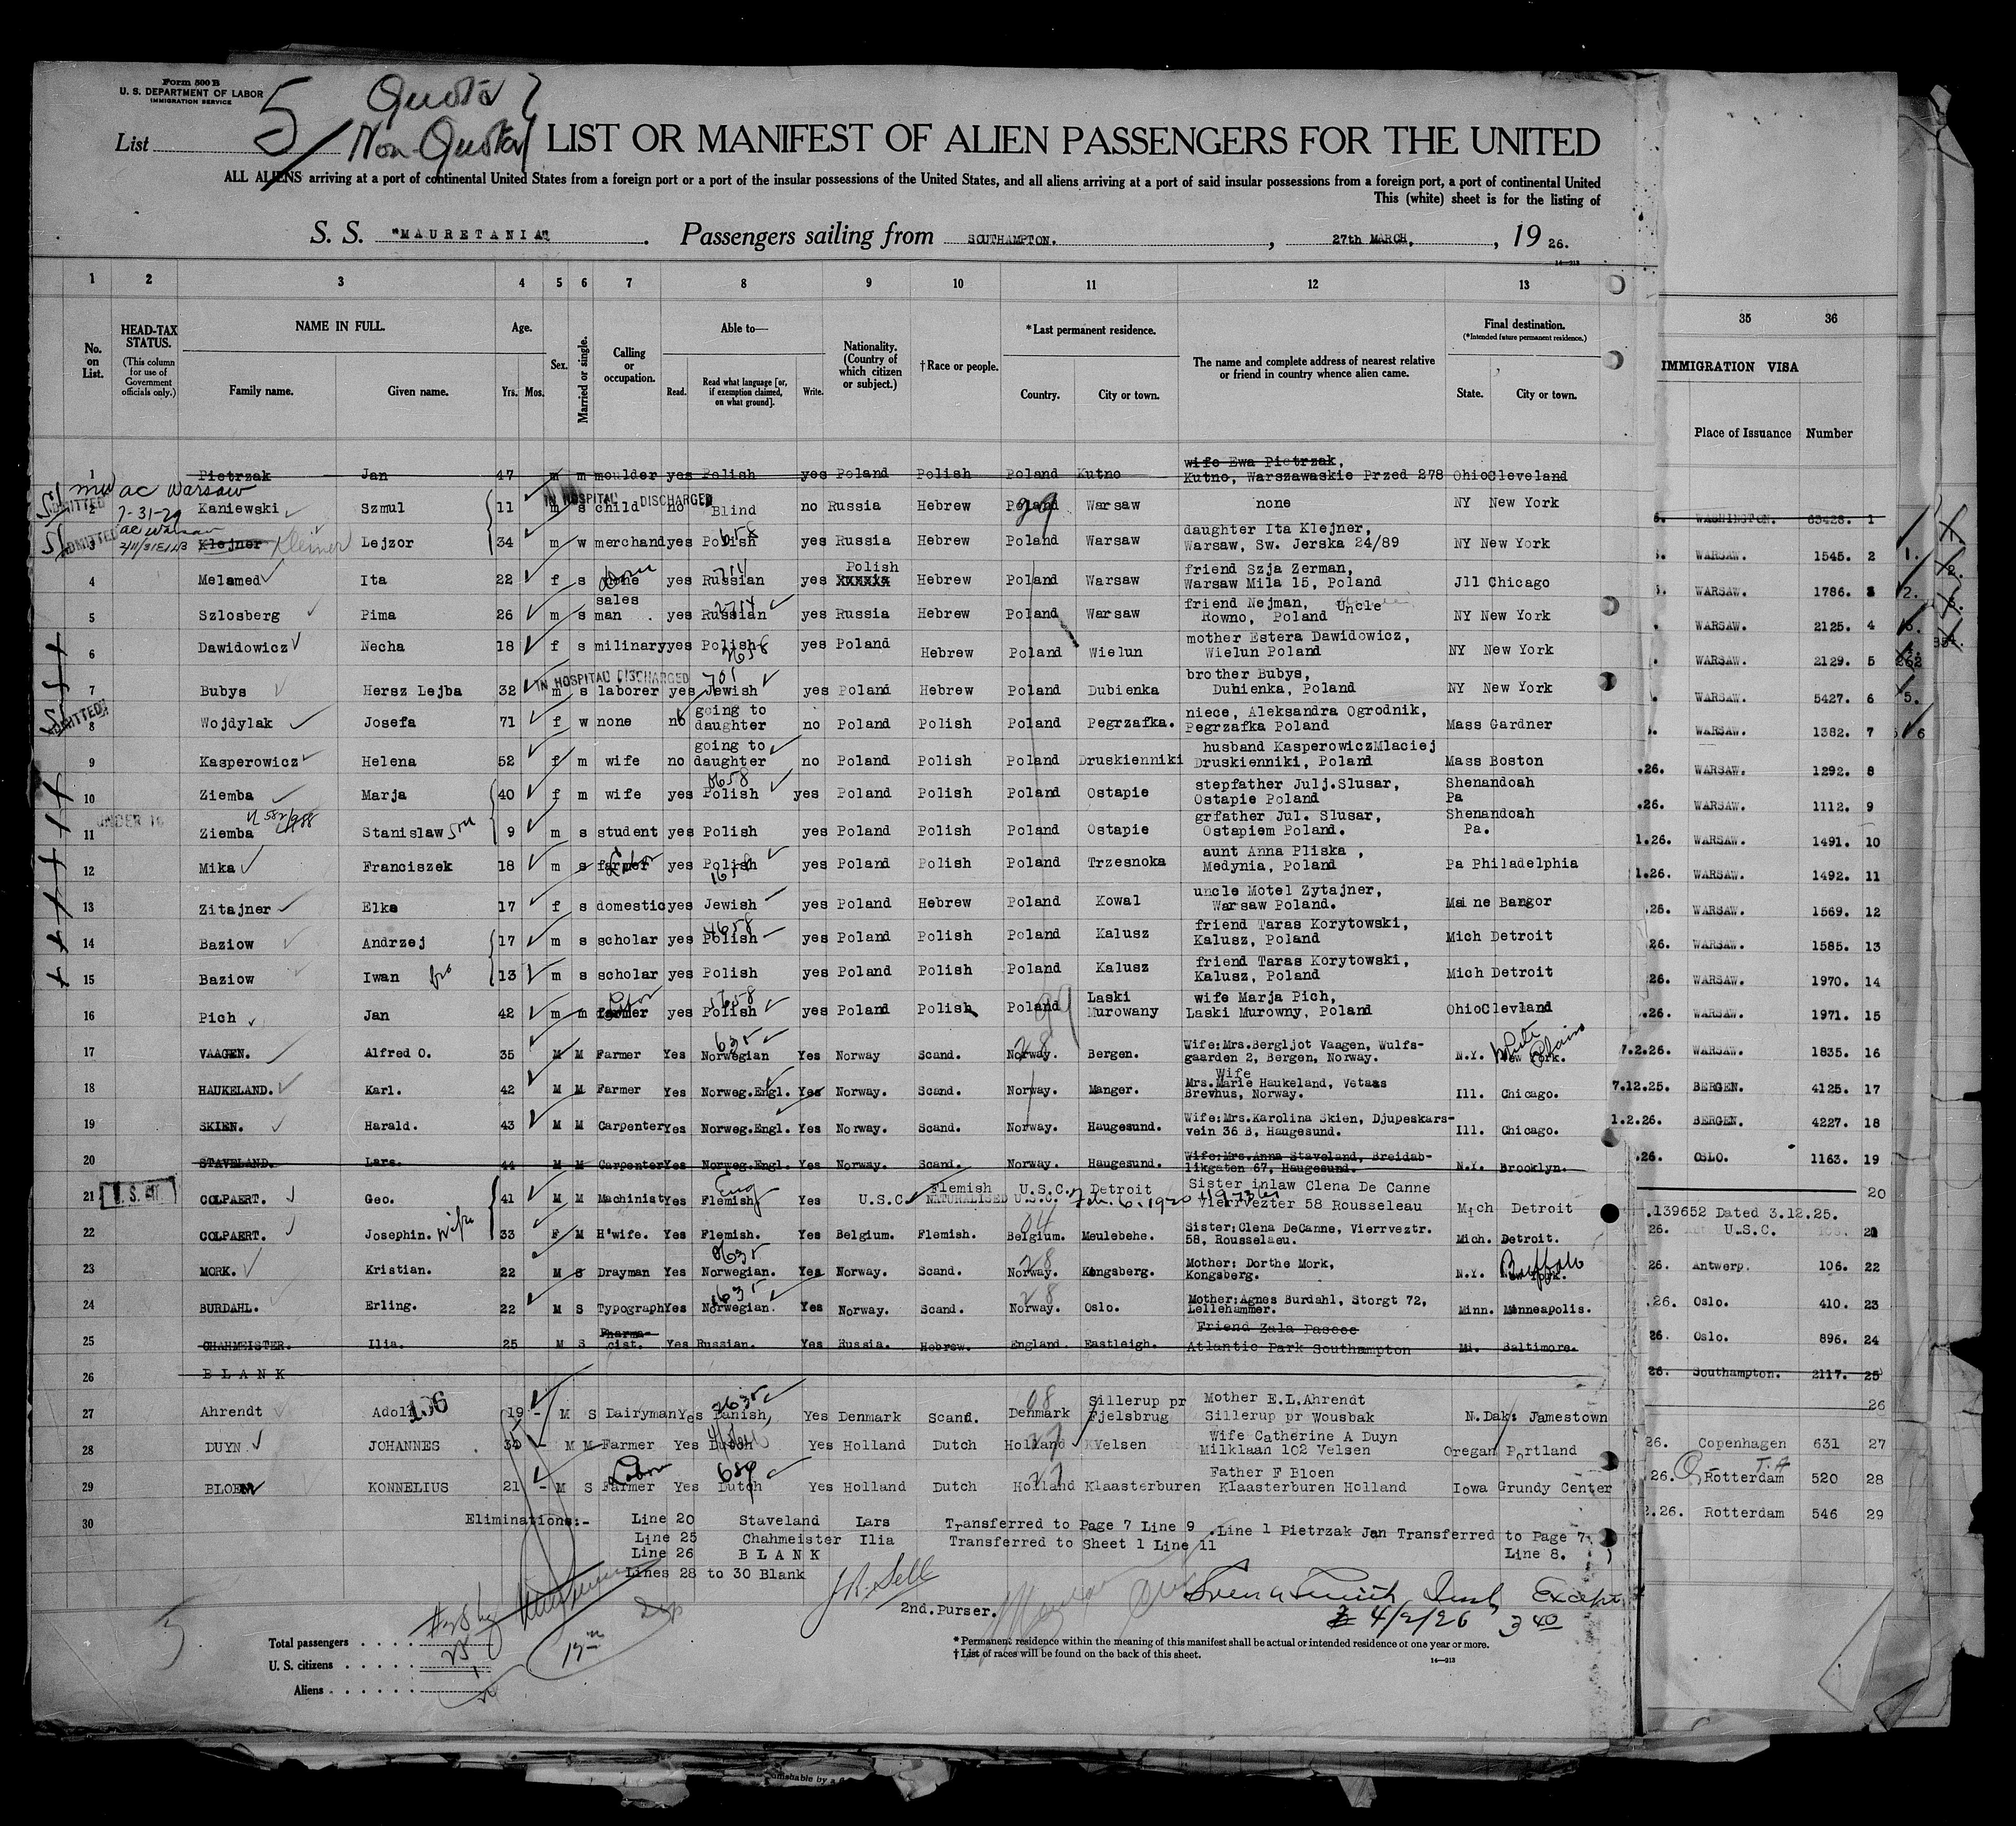 Form 500 B
U. S. DEPARTMENT OF LABOR
IMMIGRATION SERVICE
List 5
Quota
Non-Quota
LIST OR MANIFEST OF ALIEN PASSENGERS FOR THE UNITED
ALL ALIENS arriving at a port of continental United States from a foreign port or a port of the insular possessions of the United States, and all aliens arriving at a port of said insular possessions from a foreign port, a port of continental United
This (white) sheet is for the listing of
S. S. "MAURETANIA". Passengers sailing from SOUTHAMPTON. , 27th MARCH, , 19 26.
14—213
1 2 3 4 5 6 7 8 9 10 11 12 13 35 36
No. on List. HEAD-TAX STATUS. (This column for use of Government officials only.) NAME IN FULL. Family name. Given name. Age. Yrs. Mos. Sex. Married or single. Calling or occupation. Able to— Read. Read what language [or, if exemption claimed, on what ground]. Write. Nationality. (Country of which citizen or subject.) †Race or people. *Last permanent residence. Country. City or town. The name and complete address of nearest relative or friend in country whence alien came. Final destination. (*Intended future permanent residence.) State. City or town.
IMMIGRATION VISA
Place of Issuance Number
1 Pietrzak Jan 47 m m moulder yes Polish yes Poland Polish Poland Kutno wife Ewa Pietrzak, Kutno, Warszawaskie Przed 278 Ohio Cleveland
ac Warsaw
IN HOSPITAL DISCHARGED
ADMITTED 2 7-31-29 Kaniewski Szmul 11 m s child no Blind no Russia Hebrew Poland Warsaw none NY New York
ADMITTED 3 Klejner Kleiner Lejzor 34 m w merchand yes Polish yes Russia Hebrew Poland Warsaw daughter Ita Klejner, Warsaw, Sw. Jerska 24/89 NY New York
4 Melamed Ita 22 f s yes Russian yes Polish Hebrew Poland Warsaw friend Szja Zerman, Warsaw Mila 15, Poland Jll Chicago
5 Szlosberg Pima 26 m s sales man . yes Russian yes Russia Hebrew Poland Warsaw friend Nejman, Uncle Rowno, Poland NY New York
6 Dawidowicz Necha 18 f s milinary yes Polish yes Poland Hebrew Poland Wielun mother Estera Dawidowicz, Wielun Poland NY New York
IN HOSPITAL DISCHARGED
7 Bubys Hersz Lejba 32 m s laborer yes Jewish yes Poland Hebrew Poland Dubienka brother Bubys, Dubienka, Poland NY New York
ADMITTED 8 Wojdylak Josefa 71 f w none no going to daughter no Poland Polish Poland Pegrzafka. niece, Aleksandra Ogrodnik, Pegrzafka Poland Mass Gardner
9 Kasperowicz Helena 52 f m wife no going to daughter no Poland Polish Poland Druskienniki husband KasperowiczMlaciej Druskienniki, Poland Mass Boston
10 Ziemba Marja 40 f m wife yes Polish yes Poland Polish Poland Ostapie stepfather Julj.Slusar, Ostapie Poland Shenandoah Pa
11 UNDER 16 Ziemba Stanislaw son 9 m s student yes Polish yes Poland Polish Poland Ostapie grfather Jul. Slusar, Ostapiem Poland. Shenandoah Pa.
12 Mika Franciszek 18 m s farmer yes Polish yes Poland Polish Poland Trzesnoka aunt Anna Pliska , Medynia, Poland Pa Philadelphia
13 Zitajner Elke 17 f s domestic yes Jewish yes Poland Hebrew Poland Kowal uncle Motel Zytajner, Warsaw Poland. Maine Bangor
14 Baziow Andrzej 17 m s scholar yes Polish yes Poland Polish Poland Kalusz friend Taras Korytowski, Kalusz, Poland Mich Detroit
15 Baziow Iwan bro 13 m s scholar yes Polish yes Poland Polish Poland Kalusz friend Taras Korytowski, Kalusz, Poland Mich Detroit
16 Pich Jan 42 m m farmer yes Polish yes Poland Polish Poland Laski Murowany wife Marja Pich, Laski Murowny, Poland Ohio Clevland
17 VAAGEN. Alfred O. 35 M M Farmer Yes Norwegian Yes Norway Scand. Norway. Bergen. Wife:Mrs.Bergljot Vaagen, Wulfs-gaarden 2, Bergen, Norway. N.Y. New York. White Plains
18 HAUKELAND. Karl. 42 M M Farmer Yes Norweg.Engl. Yes Norway. Scand. Norway. Manger. Wife Mrs.Marie Haukeland, Vetaas Brevhus, Norway. Ill. Chicago.
19 SKIEN. Harald. 43 M M Carpenter Yes Norweg.Engl. Yes Norway. Scand. Norway. Haugesund. Wife:Mrs.Karolina Skien, Djupeskars-vein 36 B, Haugesund. Ill. Chicago.
20 STAVELAND. Lars. 44 M M Carpenter Yes Norweg.Engl. Yes Norway. Scand. Norway. Haugesund. Wife:Mrs.Anna Staveland, Breidab-likgaten 67, Haugesund. N.Y. Brooklyn.
21 COLPAERT. Geo. 41 M M Machinist Yes Flemish Eng Yes U.S.C. Flemish NATURALISED U.S.C. U.S.C. Detroit Feb. 6. 1920 Sister inlaw Clena De Canne Vierrvezter 58 Rousseleau Mich Detroit
22 COLPAERT. Josephin. Wife 33 F M H'wife. Yes Flemish. Yes Belgium. Flemish. Belgium. Meulebehe. Sister:Clena DeCanne, Vierrveztr. 58, Rousselaeu. Mich. Detroit.
23 MORK. Kristian. 22 M S Drayman Yes Norwegian. Yes Norway. Scand. Norway. Kongsberg. Mother: Dorthe Mork, Kongsberg. N.Y. Buffalo
24 BURDAHL. Erling. 22 M S Typograph Yes Norwegian. Yes Norway. Scand. Norway. Oslo. Mother:Agnes Burdahl, Storgt 72, Lellehammer. Minn. Minneapolis.
25 CHAHMEISTER. Ilia. 25 M S Pharma-cist. Yes Russian. Yes Russia. Hebrew. England. Eastleigh. Friend Zala Pascoe Atlantic Park Southampton Md. Baltimore.
26 BLANK
27 Ahrendt Adolf 19 - M S Dairyman Yes Danish, Yes Denmark Scand. Denmark Sillerup pr Fjelsbrug Mother E.L.Ahrendt Sillerup pr Wousbak N.Dak: Jamestown
28 DUYN JOHANNES 30 - M M Farmer Yes Dutch Yes Holland Dutch Holland Velsen Wife Catherine A Duyn Milklaan 102 Velsen Oregan Portland
29 BLOEM KONNELIUS 21 - M S Farmer Labor Yes Dutch Yes Holland Dutch Holland Klaasterburen Father F Bloen Klaasterburen Holland Iowa Grundy Center
30 Eliminations:- Line 20 Staveland Lars Transferred to Page 7 Line 9 .Line 1 Pietrzak Jan Transferred to Page 7
Line 25 Chahmeister Ilia Transferred to Sheet 1 Line 11 Line 8.
Line 26 BLANK
Lines 28 to 30 Blank
2nd.Purser.
4/2/26 3 40
Total passengers . . . .
U. S. citizens . . . . .
Aliens . . . . . .
* Permanent residence within the meaning of this manifest shall be actual or intended residence of one year or more.
† List of races will be found on the back of this sheet.
14—213
WASHINGTON. 63428. 1
WARSAW. 1545. 2
WARSAW. 1786. 3
WARSAW. 2125. 4
WARSAW. 2129. 5
WARSAW. 5427. 6
WARSAW. 1382. 7
.26. WARSAW. 1292. 8
.26. WARSAW. 1112. 9
1.26. WARSAW. 1491. 10
1.26. WARSAW. 1492. 11
.26. WARSAW. 1569. 12
26. WARSAW. 1585. 13
26. WARSAW. 1970. 14
.26. WARSAW. 1971. 15
7.2.26. WARSAW. 1835. 16
7.12.25. BERGEN. 4125. 17
1.2.26. BERGEN. 4227. 18
.26. OSLO. 1163. 19
20
.139652 Dated 3.12.25.
26. U.S.C. 21
26. Antwerp. 106. 22
.26. Oslo. 410. 23
26. Oslo. 896. 24
26. Southampton. 2117. 25
26
26. Copenhagen 631 27
26. Rotterdam 520 28
2.26. Rotterdam 546 29